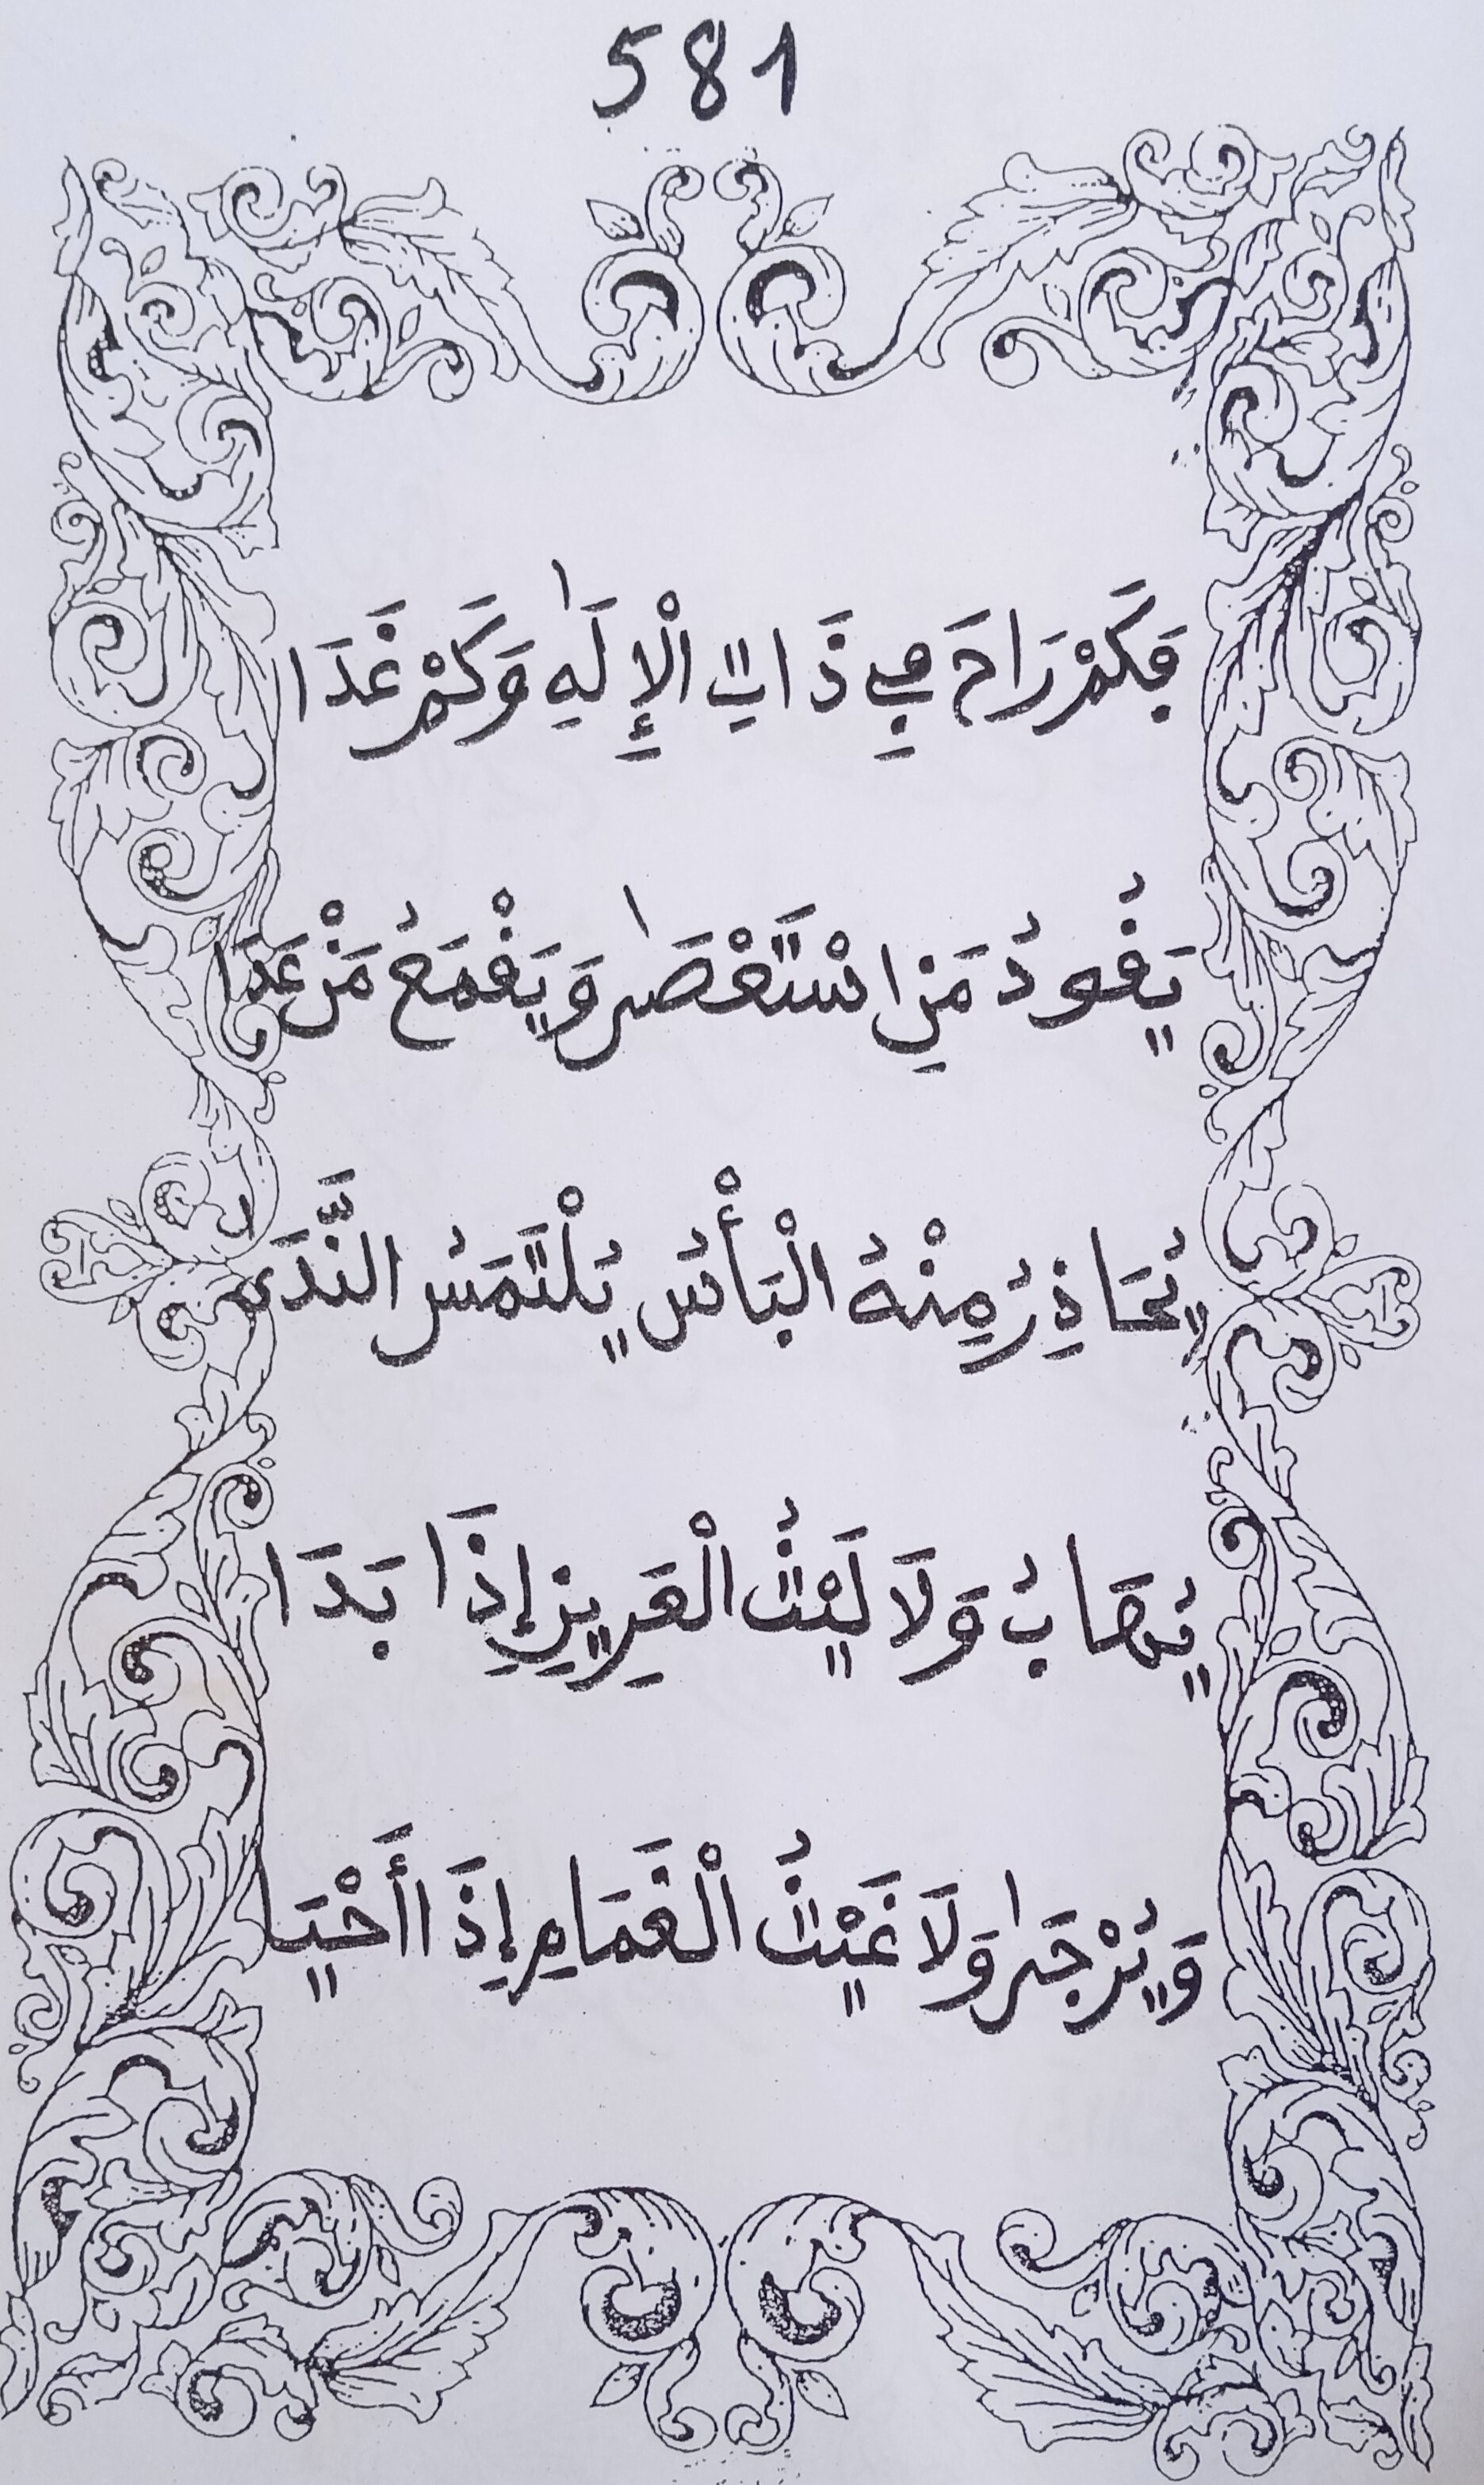 581
فَكَمْ رَاحَ فِي ذَاتِ الْإِلَهِ وَكَمْ غَدَا
يَقُودُ مَنِ اسْتَعْصَى وَيَقْمَعُ مَنْ عَدَا
يُحَاذِرُ مِنْهُ الْبَأْسُ يُلْتَمَسُ النَّدَى
يُهَابُ وَلَا لَيْثُ الْعَرِينِ إِذَا بَدَا
وَيُرْجَى وَلَا غَيْثُ الْغَمَامِ إِذَا أَحْيَا